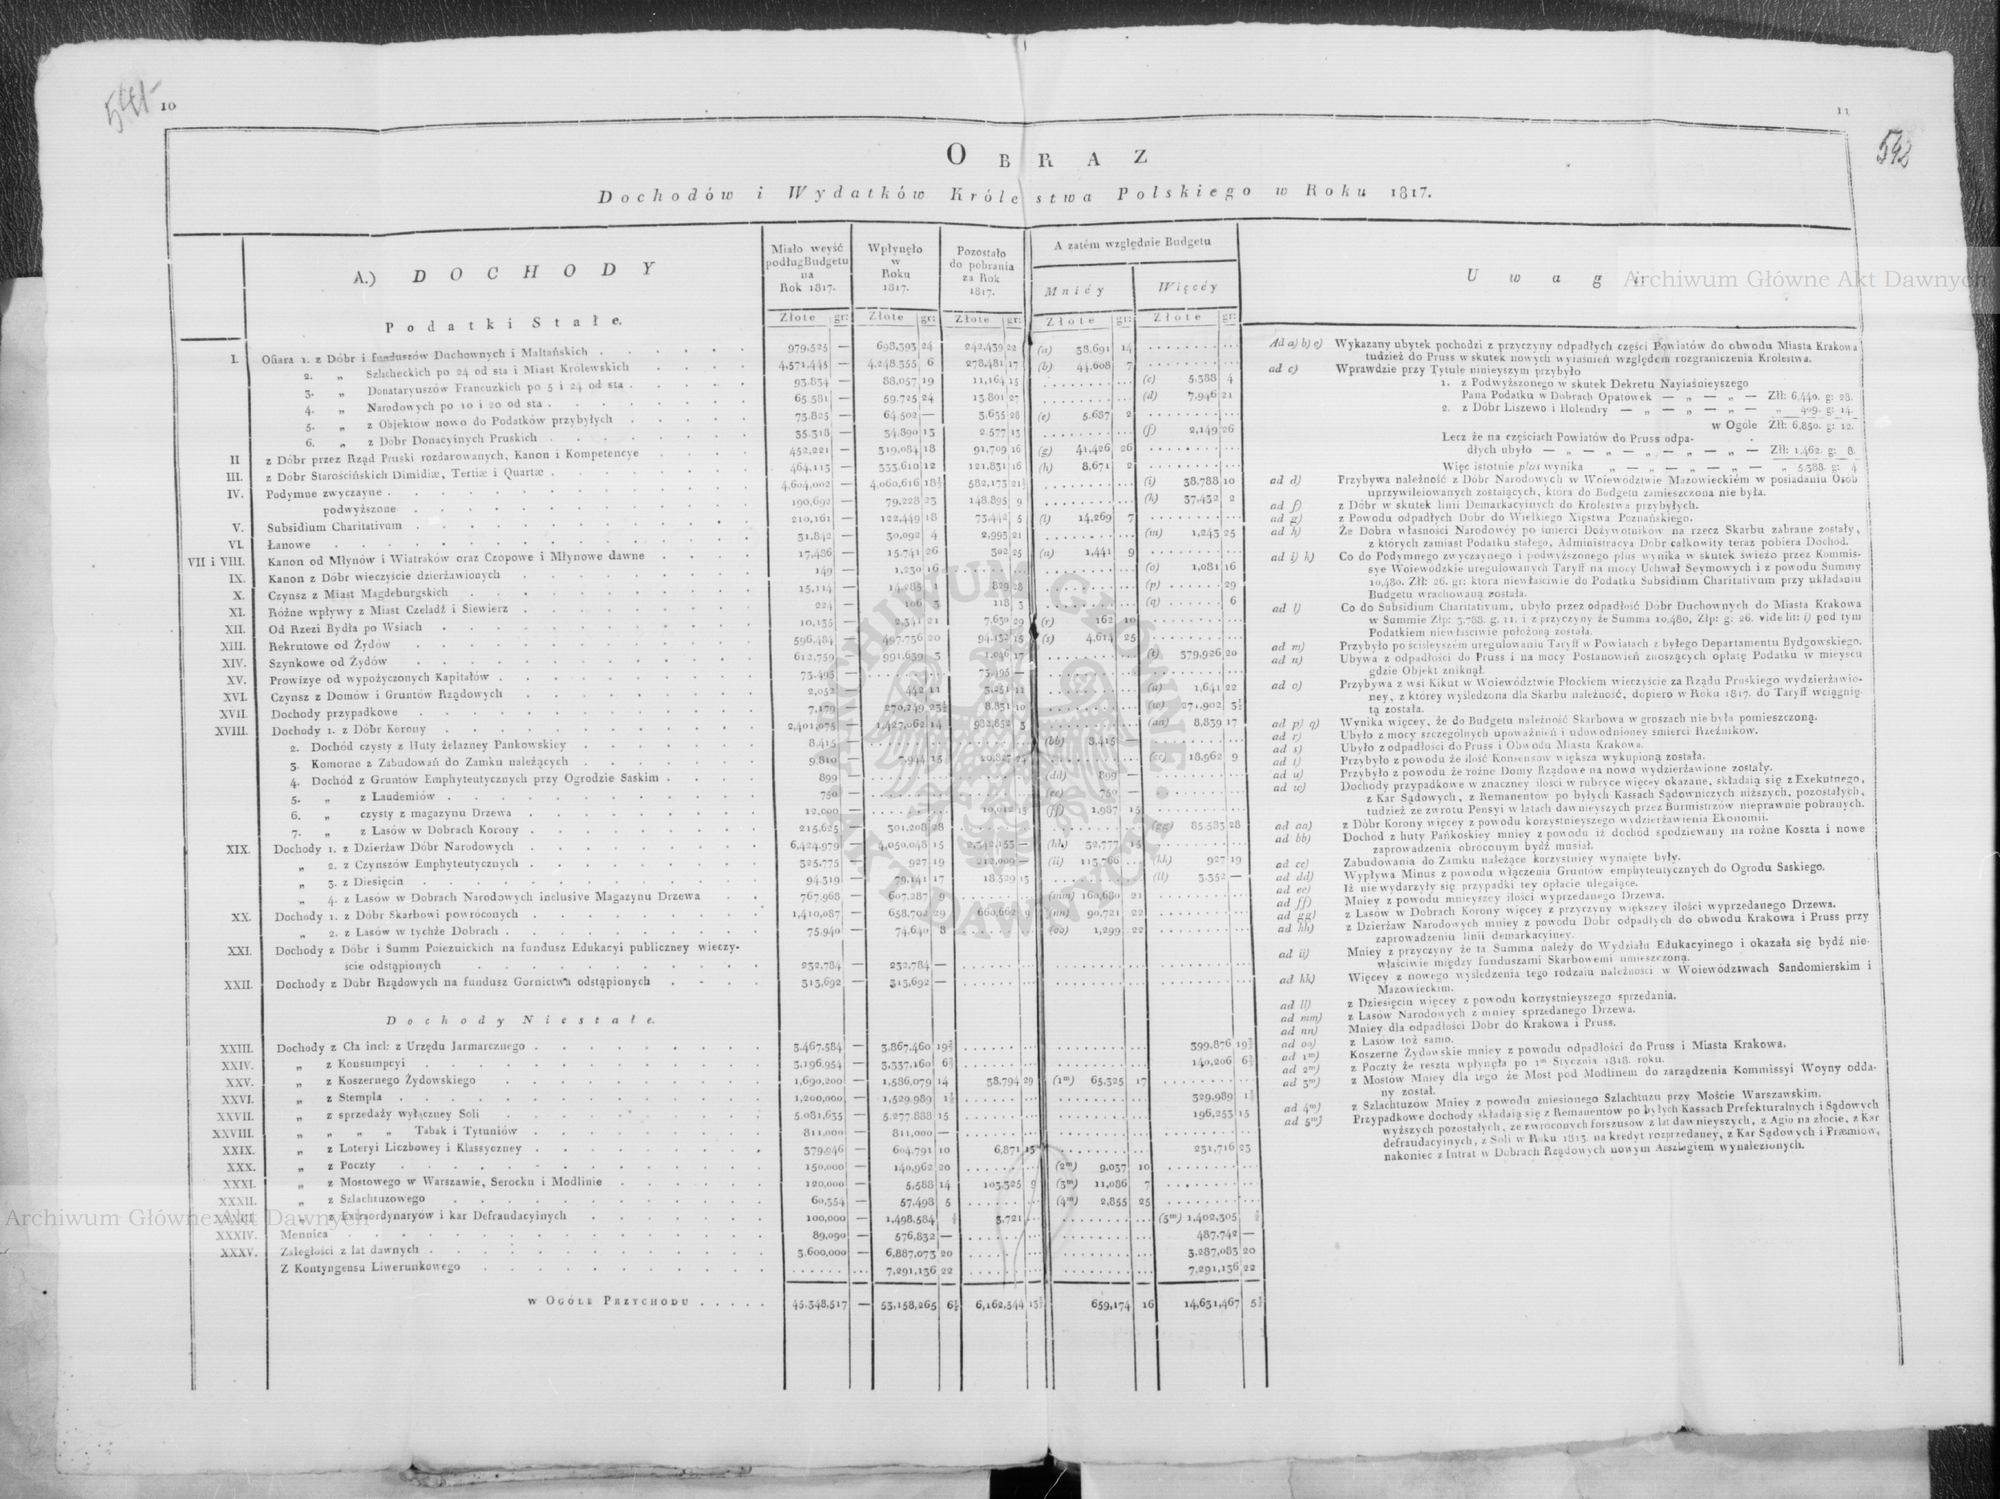 541
10
11
542
OBRAZ
Dochodów i Wydatków Królestwa Polskiego w Roku 1817.
A.) DOCHODY
Miało weyść podług Budgetu na Rok 1817.
Wpłynęło w Roku 1817.
Pozostało do pobrania za Rok 1817.
A zatém względnie Budgetu
Mniéy
Więcéy
Uwagi
Złote gr: Złote gr: Złote gr: Złote gr: Złote gr:
Podatki Stałe.
I. Ofiara 1. z Dóbr i funduszów Duchownych i Maltańskich 979,525 — 698,393 24 242,439 22 (a) 38,691 14
2. „ Szlacheckich po 24 od sta i Miast Królewskich 4,571,445 — 4,248,355 6 278,481 17 (b) 44,608 7
3. „ Donataryuszów Francuzkich po 5 i 24 od sta 93,834 — 88,057 19 11,164 15 (c) 5,388 4
4. „ Narodowych po 10 i 20 od sta 65,581 — 59,725 24 13,801 27 (d) 7,946 21
5. „ z Objektów nowo do Podatków przybyłych 73,825 — 64,502 — 3,635 28 (e) 5,687 2
6. „ z Dóbr Donacyinych Pruskich 35,318 — 34,890 13 2,577 13 (f) 2,149 26
II z Dóbr przez Rząd Pruski rozdarowanych, Kanon i Kompetencye 452,221 — 319,084 18 91,709 16 (g) 41,426 26
III. z Dóbr Starościńskich Dimidiæ, Tertiæ i Quartæ 464,113 — 333,610 12 121,831 16 (h) 8,671 2
IV. Podymne zwyczayne 4,604,002 — 4,060,616 18½ 582,173 21½ (i) 38,788 10
podwyższone 190,692 — 79,228 23 148,895 9 (k) 37,432 2
V. Subsidium Charitativum 210,161 — 122,449 18 73,442 5 (l) 14,269 7
VI. Łanowe 31,842 — 30,092 4 2,993 21 (m) 1,243 25
VII i VIII. Kanon od Młynów i Wiatraków oraz Czopowe i Młynowe dawne 17,486 — 15,741 26 302 25 (n) 1,441 9
IX. Kanon z Dóbr wieczyście dzierżawionych 149 — 1,230 16 (o) 1,081 16
X. Czynsz z Miast Magdeburgskich 15,114 — 14,285 1 829 28 (p) 29
XI. Różne wpływy z Miast Czeladź i Siewierz 224 — 106 3 118 3 (q) 6
XII. Od Rzezi Bydła po Wsiach 10,135 — 2,341 21 7,630 29 (r) 162 10
XIII. Rekrutowe od Żydów 596,484 — 497,736 20 94,132 15 (s) 4,614 25
XIV. Szynkowe od Żydów 612,759 — 991,639 3 1,046 17 (t) 379,926 20
XV. Prowizye od wypożyczonych Kapitałów 73,495 — 73,495 —
XVI. Czynsz z Domów i Gruntów Rządowych 2,052 — 442 11 3,251 11 (u) 1,641 22
XVII. Dochody przypadkowe 7,179 — 270,249 23½ 8,831 10 (w) 271,902 3½
XVIII. Dochody 1. z Dóbr Korony 2,401,075 — 1,427,062 14 982,852 3 (aa) 8,839 17
2. Dochód czysty z Huty żelazney Pankowskiey 8,415 — (bb) 8,415 —
3. Komorne z Zabudowań do Zamku należących 9,810 — 7,944 15 (cc) 18,962 9
4. Dochód z Gruntów Emphyteutycznych przy Ogrodzie Saskim 899 — (dd) 899 —
5. „ z Laudemiów 750 — (ee) 750 —
6. „ czysty z magazynu Drzewa 12,000 — 10,012 15 (ff) 1,987 15
7. „ z Lasów w Dobrach Korony 215,625 — 301,208 28 (gg) 85,583 28
XIX. Dochody 1. z Dzierżaw Dóbr Narodowych 6,424,979 — 4,050,048 15 2,342,153 — (hh) 32,777 15
„ 2. z Czynszów Emphyteutycznych 325,775 — 927 19 212,009 — (ii) 113,766 — (kk) 927 19
„ 3. z Dziesięcin 94,319 — 79,141 17 18,529 13 (ll) 3,352 —
„ 4. z Lasów w Dobrach Narodowych inclusive Magazynu Drzewa 767,968 — 607,287 9 (mm) 160,680 21
XX. Dochody 1. z Dóbr Skarbowi powróconych 1,410,087 — 658,702 29 660,662 9 (nn) 90,721 22
„ 2. z Lasów w tychże Dobrach 75,940 — 74,640 8 (oo) 1,299 22
XXI. Dochody z Dóbr i Summ Poiezuickich na fundusz Edukacyi publiczney wieczy-
ście odstąpionych 232,784 — 232,784 —
XXII. Dochody z Dóbr Rządowych na fundusz Gornictwa odstąpionych 313,692 — 313,692 —
Dochody Niestałe.
XXIII. Dochody z Cła incl: z Urzędu Jarmarcznego 3,467,584 — 3,867,460 19½ 399,876 19½
XXIV. „ z Konsumpcyi 3,196,954 — 3,337,160 6½ 140,206 6½
XXV. „ z Koszernego Żydowskiego 1,690,200 — 1,586,079 14 38,794 29 (1m) 65,325 17
XXVI. „ z Stempla 1,200,000 — 1,529,989 1½ 329,989 1½
XXVII. „ z sprzedaży wyłączney Soli 5,081,635 — 5,277,888 15 196,253 15
XXVIII. „ „ „ „ Tabak i Tytuniów 811,000 — 811,000 —
XXIX. „ z Loteryi Liczbowey i Klassyczney 379,946 — 604,791 10 6,871 13 231,716 23
XXX. „ z Poczty 150,000 — 140,962 20 (2m) 9,037 10
XXXI. „ z Mostowego w Warszawie, Serocku i Modlinie 120,000 — 5,588 14 103,325 9 (3m) 11,086 7
XXXII. „ z Szlachtuzowego 60,354 — 57,498 5 (4m) 2,855 25
XXXIII. „ z Extraordynaryów i kar Defraudacyinych 100,000 — 1,498,584 ½ 3,721 (5m) 1,402,305 ½
XXXIV. Mennica 89,090 — 576,832 — 487,742 —
XXXV. Zaległości z lat dawnych 3,600,000 — 6,887,073 20 3,287,083 20
Z Kontyngensu Liwerunkowego 7,291,136 22 7,291,136 22
w Ogóle Przychodu 45,348,517 — 53,158,265 6½ 6,162,544 13½ 659,174 16 14,631,467 5½
Ad a) b) e) Wykazany ubytek pochodzi z przyczyny odpadłych części Powiatów do obwodu Miasta Krakowa
tudzież do Pruss w skutek nowych wyiaśnień względem rozgraniczenia Krolestwa.
ad c) Wprawdzie przy Tytule ninieyszym przybyło
1. z Podwyższonego w skutek Dekretu Nayiaśnieyszego
Pana Podatku w Dobrach Opatówek — „ — „ — Złł: 6,440. g: 28.
2. z Dóbr Liszewo i Holendry — „ — „ — „ — „ 409. g: 14.
w Ogóle Złł: 6,850. g: 12.
Lecz że na częściach Powiatów do Pruss odpa-
dłych ubyło — „ — „ — „ — „ — Złł: 1,462. g: 8.
Więc istotnie plus wynika „ — „ — „ — „ — „ 5,388. g: 4
ad d) Przybywa należność z Dóbr Narodowych w Woiewództwie Mazowieckiém w posiadaniu Osób
uprzywileiowanych zostaiących, która do Budgetu zamieszczona nie była.
ad f) z Dóbr w skutek linii Demarkacyinych do Krolestwa przybyłych.
ad g) z Powodu odpadłych Dóbr do Wielkiego Xięstwa Poznańskiego.
ad h) Że Dobra własności Narodowéy po śmierci Dożywotników na rzecz Skarbu zabrane zostały,
z których zamiast Podatku stałego, Administracya Dobr całkowity teraz pobiera Dochod.
ad i) k) Co do Podymnego zwyczaynego i podwyższonego plus wynika w skutek świeżo przez Kommis-
sye Woiewódzkie uregulowanych Taryff na mocy Uchwał Seymowych i z powodu Summy
10,480. Złł: 26. gr: ktora niewłaściwie do Podatku Subsidium Charitativum przy układaniu
Budgetu wrachowaną została.
ad l) Co do Subsidium Charitativum, ubyło przez odpadłość Dóbr Duchownych do Miasta Krakowa
w Summie Złp: 3,788. g. 11. i z przyczyny że Summa 10,480, Złp: g: 26. vide lit: i) pod tym
Podatkiem niewłaściwie położoną została.
ad m) Przybyło po ściśleyszém uregulowaniu Taryff w Powiatach z byłego Departamentu Bydgowskiego.
ad n) Ubywa z odpadłości do Pruss i na mocy Postanowień znoszących opłatę Podatku w mieyscu
gdzie Objekt zniknął.
ad o) Przybywa z wsi Kikut w Woiewództwie Płockiem wieczyście za Rządu Pruskiego wydzierżawio-
ney, z którey wyśledzona dla Skarbu należność, dopiero w Roku 1817. do Taryff wciągnię-
tą została.
ad p) q) Wynika więcey, że do Budgetu należność Skarbowa w groszach nie była pomieszczoną.
ad r) Ubyło z mocy szczególnych upoważnień i udowodnioney śmierci Rzeźników.
ad s) Ubyło z odpadłości do Pruss i Obwodu Miasta Krakowa.
ad t) Przybyło z powodu że ilość Konsensow większa wykupioną została.
ad u) Przybyło z powodu że różne Domy Rządowe na nowo wydzierżawione zostały.
ad w) Dochody przypadkowe w znaczney ilości w rubryce więcey okazane, składaią się z Exekutnego,
z Kar Sądowych, z Remanentów po byłych Kassach Sądowniczych niższych, pozostałych,
tudzież ze zwrotu Pensyi w latach dawnieyszych przez Burmistrzów nieprawnie pobranych.
ad aa) z Dóbr Korony więcey z powodu korzystnieyszego wydzierżawienia Ekonomii.
ad bb) Dochod z huty Pańkoskiey mniey z powodu iż dochód spodziewany na różne Koszta i nowe
zaprowadzenia obroconym bydź musiał.
ad cc) Zabudowania do Zamku należące korzystniey wynaięte były.
ad dd) Wypływa Minus z powodu włączenia Gruntów emphyteutycznych do Ogrodu Saskiego.
ad ee) Iż nie wydarzyły się przypadki tey opłacie ulegaiące.
ad ff) Mniey z powodu mnieyszey ilości wyprzedanego Drzewa.
ad gg) z Lasów w Dobrach Korony więcey z przyczyny większey ilości wyprzedanego Drzewa.
ad hh) z Dzierżaw Narodowych mniey z powodu Dóbr odpadłych do obwodu Krakowa i Pruss przy
zaprowadzeniu linii demarkacyiney.
ad ii) Mniey z przyczyny że ta Summa należy do Wydziału Edukacyinego i okazała się bydź nie-
właściwie między funduszami Skarbowemi umieszczoną.
ad kk) Więcey z nowego wyśledzenia tego rodzaiu należności w Woiewództwach Sandomierskim i
Mazowieckim.
ad ll) z Dziesięcin więcey z powodu korzystnieyszego sprzedania.
ad mm) z Lasów Narodowych z mniey sprzedanego Drzewa.
ad nn) Mniey dla odpadłości Dóbr do Krakowa i Pruss.
ad oo) z Lasów toż samo.
ad 1m) Koszerne Żydowskie mniey z powodu odpadłości do Pruss i Miasta Krakowa.
ad 2m) z Poczty że reszta wpłynęła po 1m Stycznia 1818. roku.
ad 3m) z Mostów Mniey dla tego że Most pod Modlinem do zarządzenia Kommissyi Woyny odda-
ny został.
ad 4m) z Szlachtuzów Mniey z powodu zniesionego Szlachtuzu przy Moście Warszawskim.
ad 5m) Przypadkowe dochody składaią się z Remanentów po byłych Kassach Prefekturalnych i Sądowych
wyższych pozostałych, ze zwroconych forszusów z lat dawnieyszych, z Agio na złocie, z Kar
defraudacyinych, z Soli w Roku 1813. na kredyt rozprzedaney, z Kar Sądowych i Præmiów,
nakoniec z Intrat w Dobrach Rządowych nowym Anszlagiem wynalezionych.
Archiwum Główne Akt Dawnych
Archiwum Główne Akt Dawnych
ARCHIWUM GŁÓWNE AKT DAWNYCH